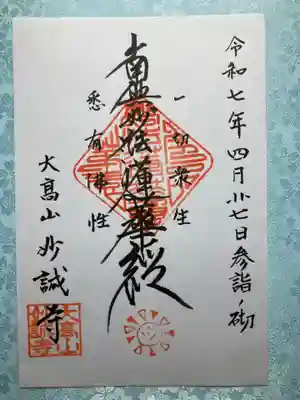 令和七年四月廿七日参詣ノ砌
一切衆生
南無妙法蓮華経
悉有佛性
大高山妙誠寺